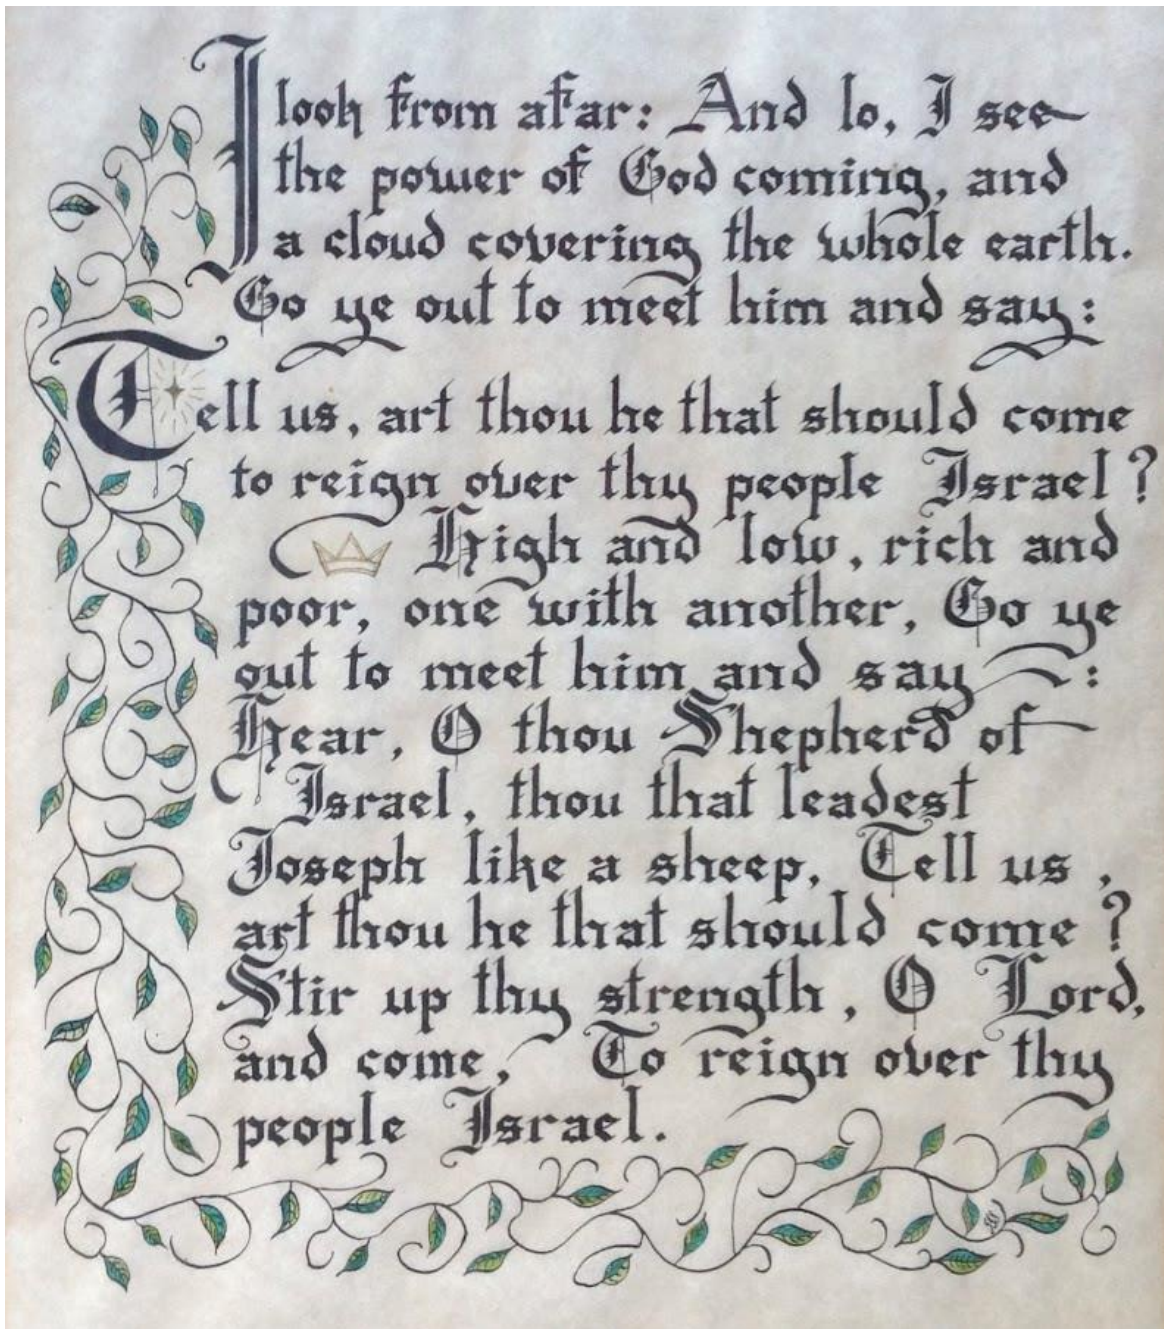 I look from afar: And lo, I see
the power of God coming, and
a cloud covering the whole earth.
Go ye out to meet him and say:
Tell us, art thou he that should come
to reign over thy people Israel?
High and low, rich and
poor, one with another, Go ye
out to meet him and say:
Hear, O thou Shepherd of
Israel, thou that leadest
Joseph like a sheep, Tell us,
art thou he that should come?
Stir up thy strength, O Lord,
and come, To reign over thy
people Israel.